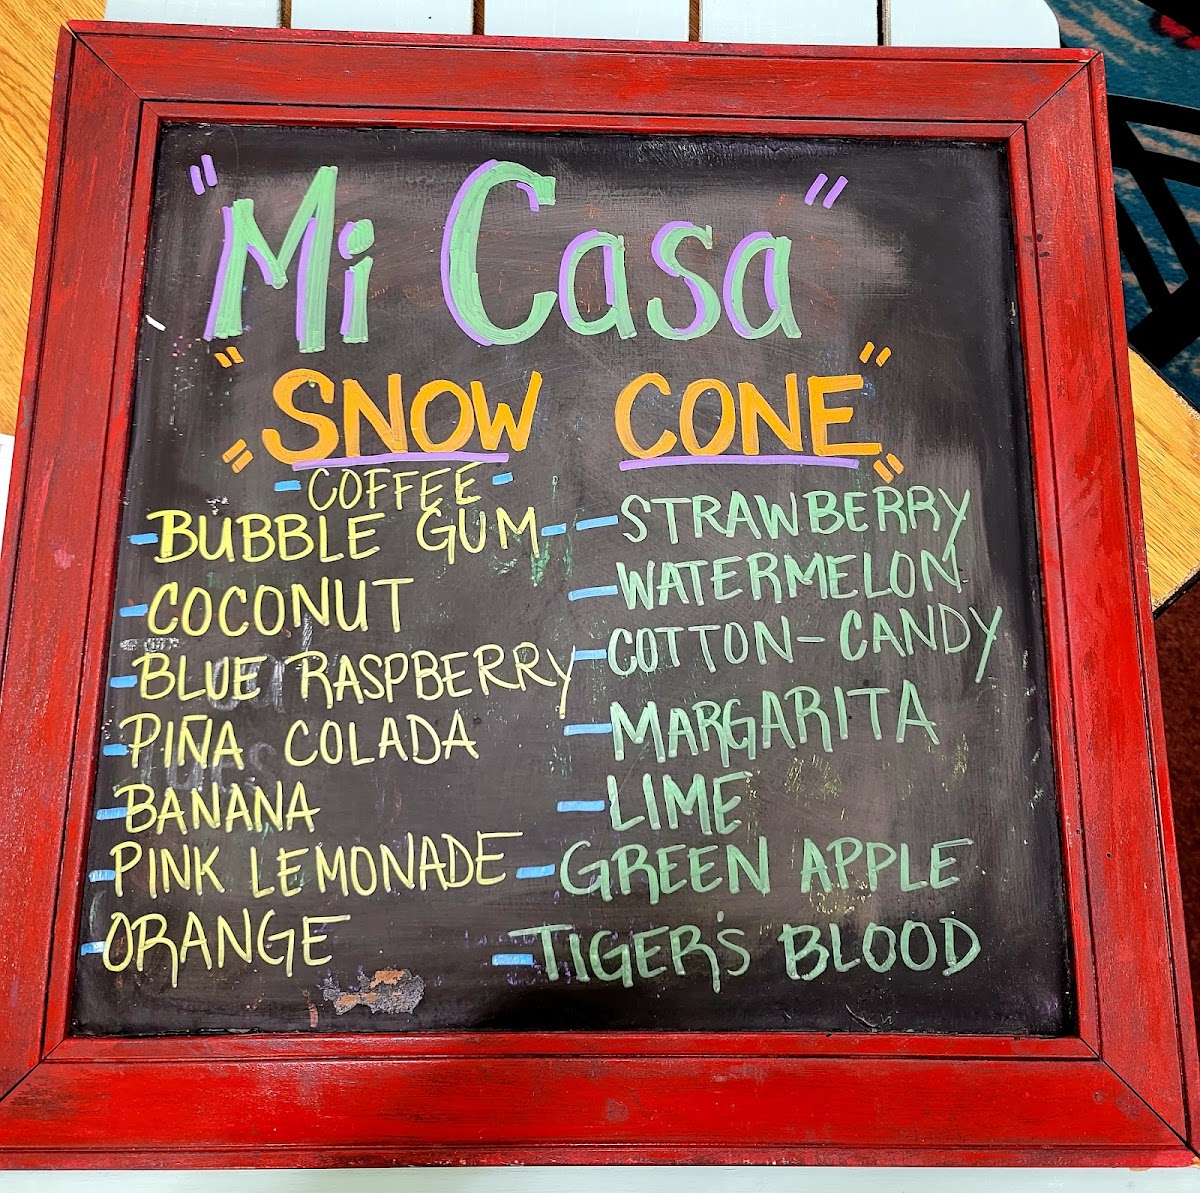 "Mi Casa"
"SNOW CONE"
- COFFEE -
- BUBBLE GUM -
- COCONUT
- BLUE RASPBERRY
- PIÑA COLADA
- BANANA
- PINK LEMONADE
- ORANGE
- STRAWBERRY
- WATERMELON
- COTTON-CANDY
- MARGARITA
- LIME
- GREEN APPLE
- TIGER'S BLOOD